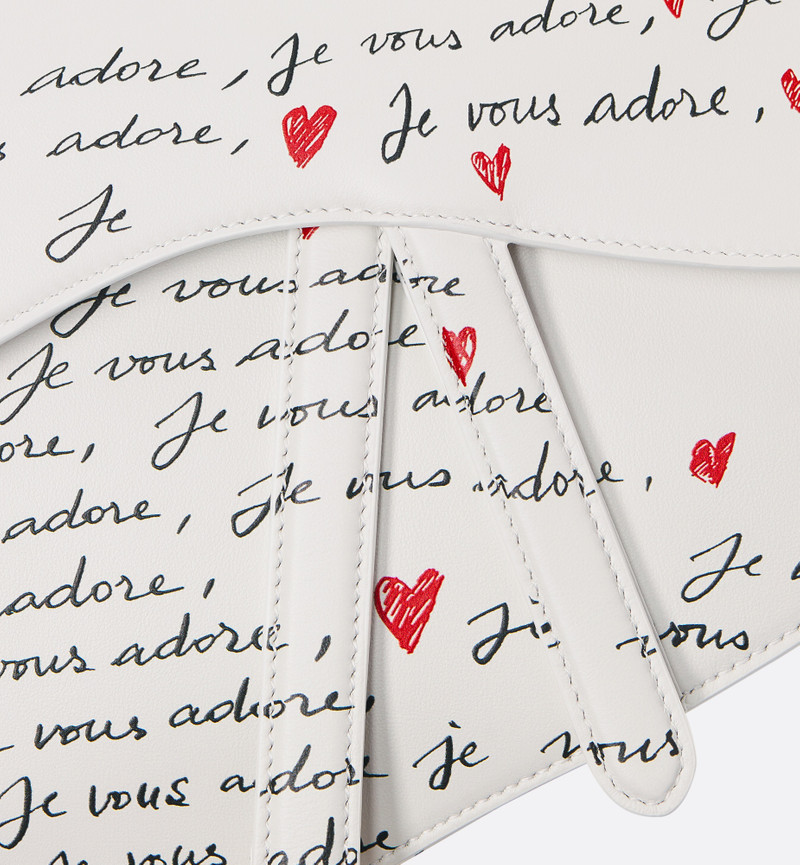 adore, Je vous adore, Je
adore, Je vous adore,
Je
Je vous adore
Je vous adore
adore, Je vous adore
adore, Je vous adore,
adore, Je
vous adore, Je vous
vous adore,
Je vous adore je vous
Je vous adore